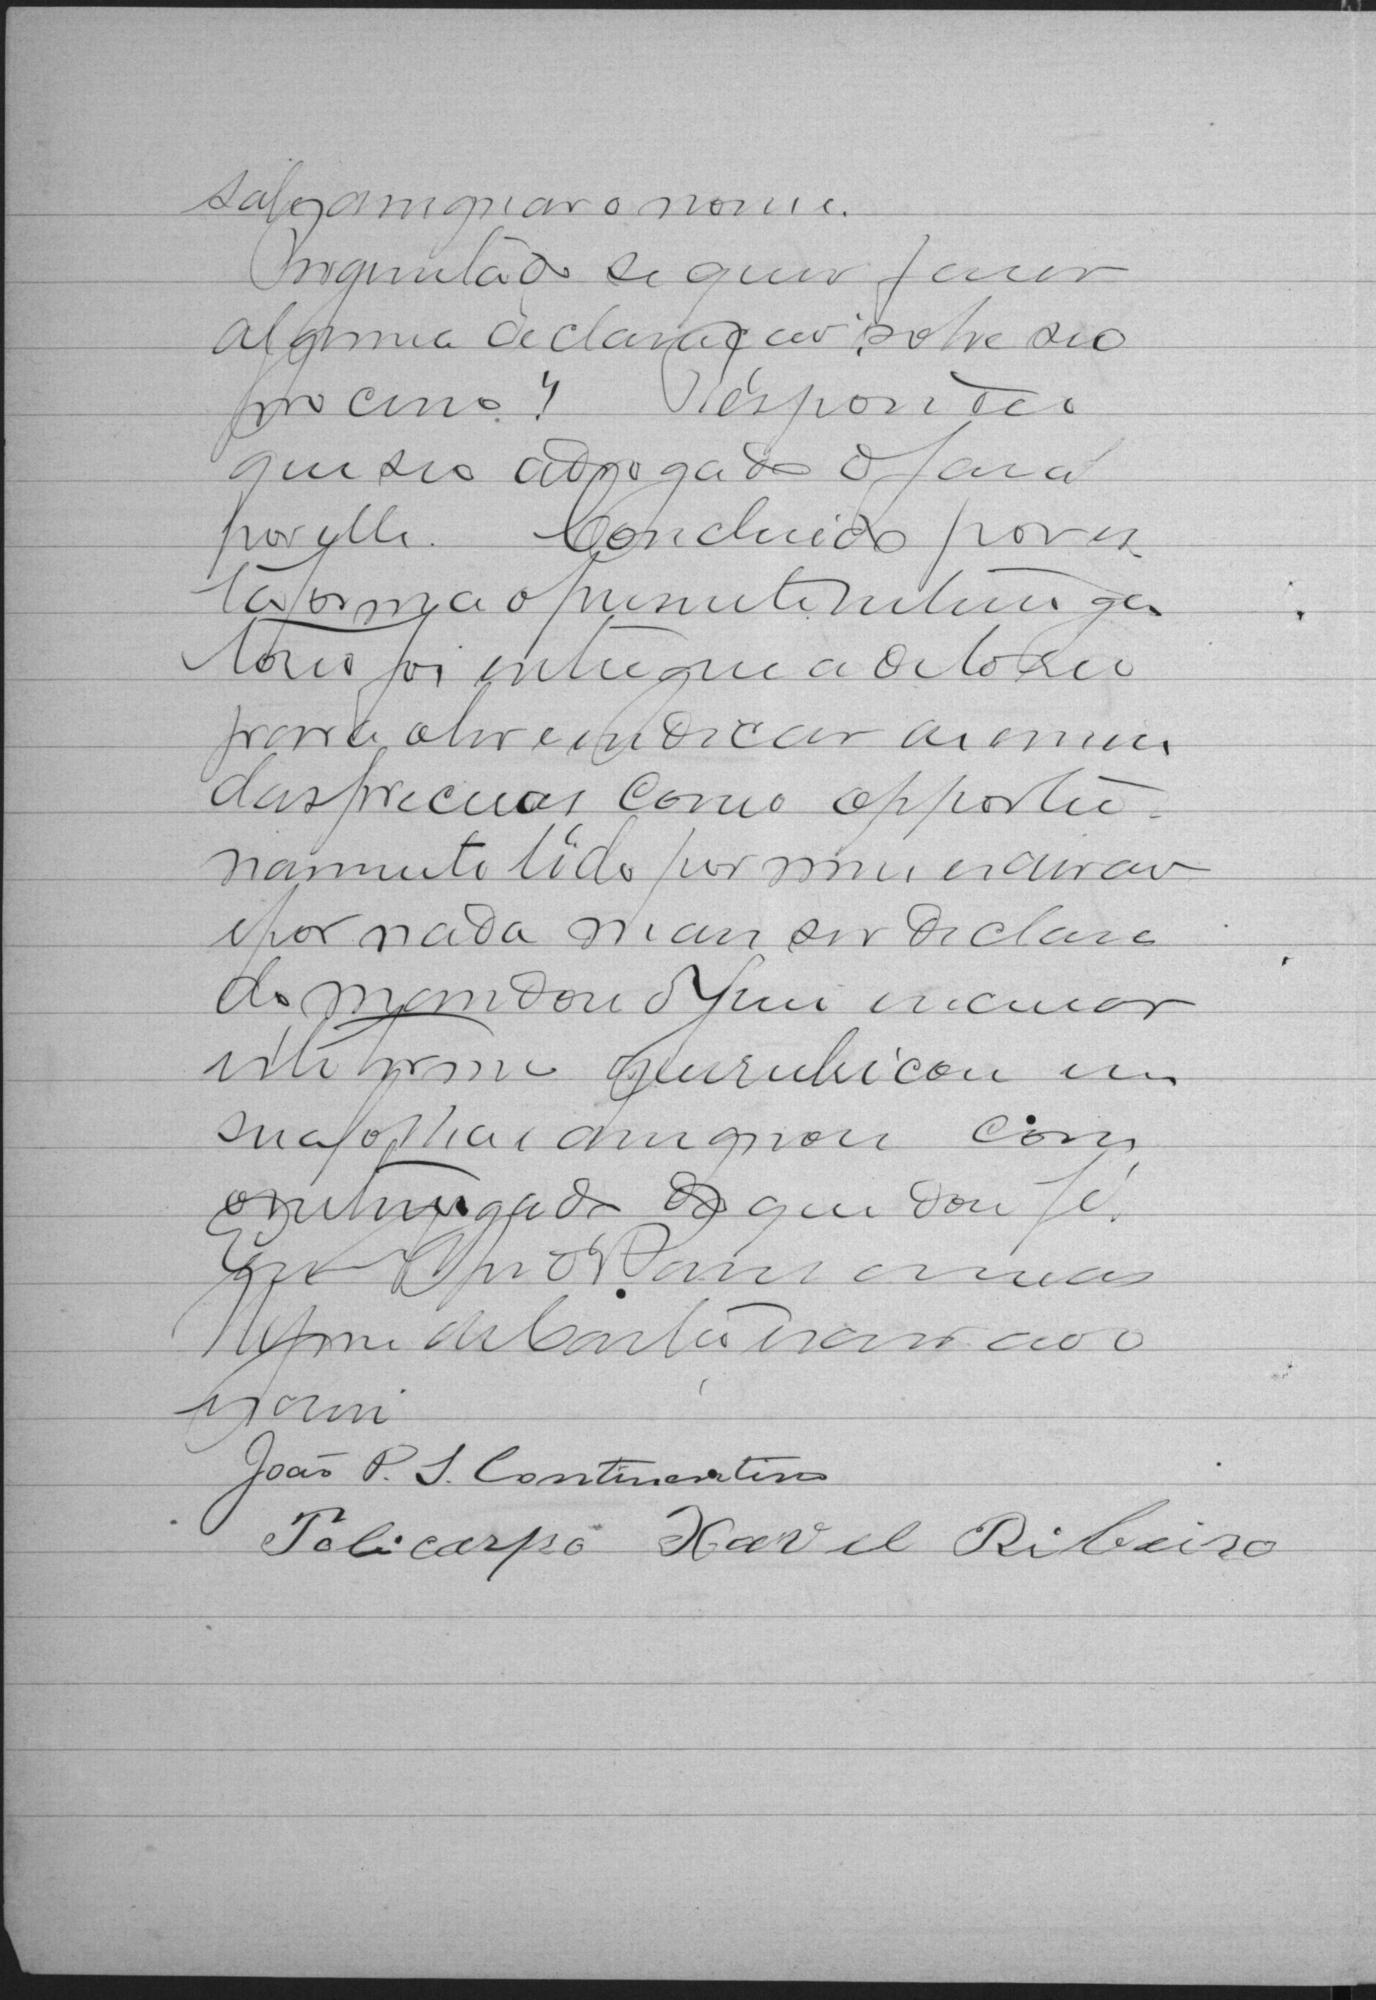 sabe assignar o nome.
Preguntado se quer fazer
alguma declaração sobre seo
processo? Respondeo
que seo advogado o fará
por elle. Concluido por es
ta forma o presente interroga
torio foi entregue a dito reo
para abrir e indicar as emen
das precisas como opportu
namente lido por mim escrivão
e por nada mais ser declara
do mandou o Juiz encerrar
este termo que rubicou em
sua folha e assignou com
o interrogado do que dou fé.
Eu
escrivi
João P. S. Continentino
Policarpo Xavel Ribeiro